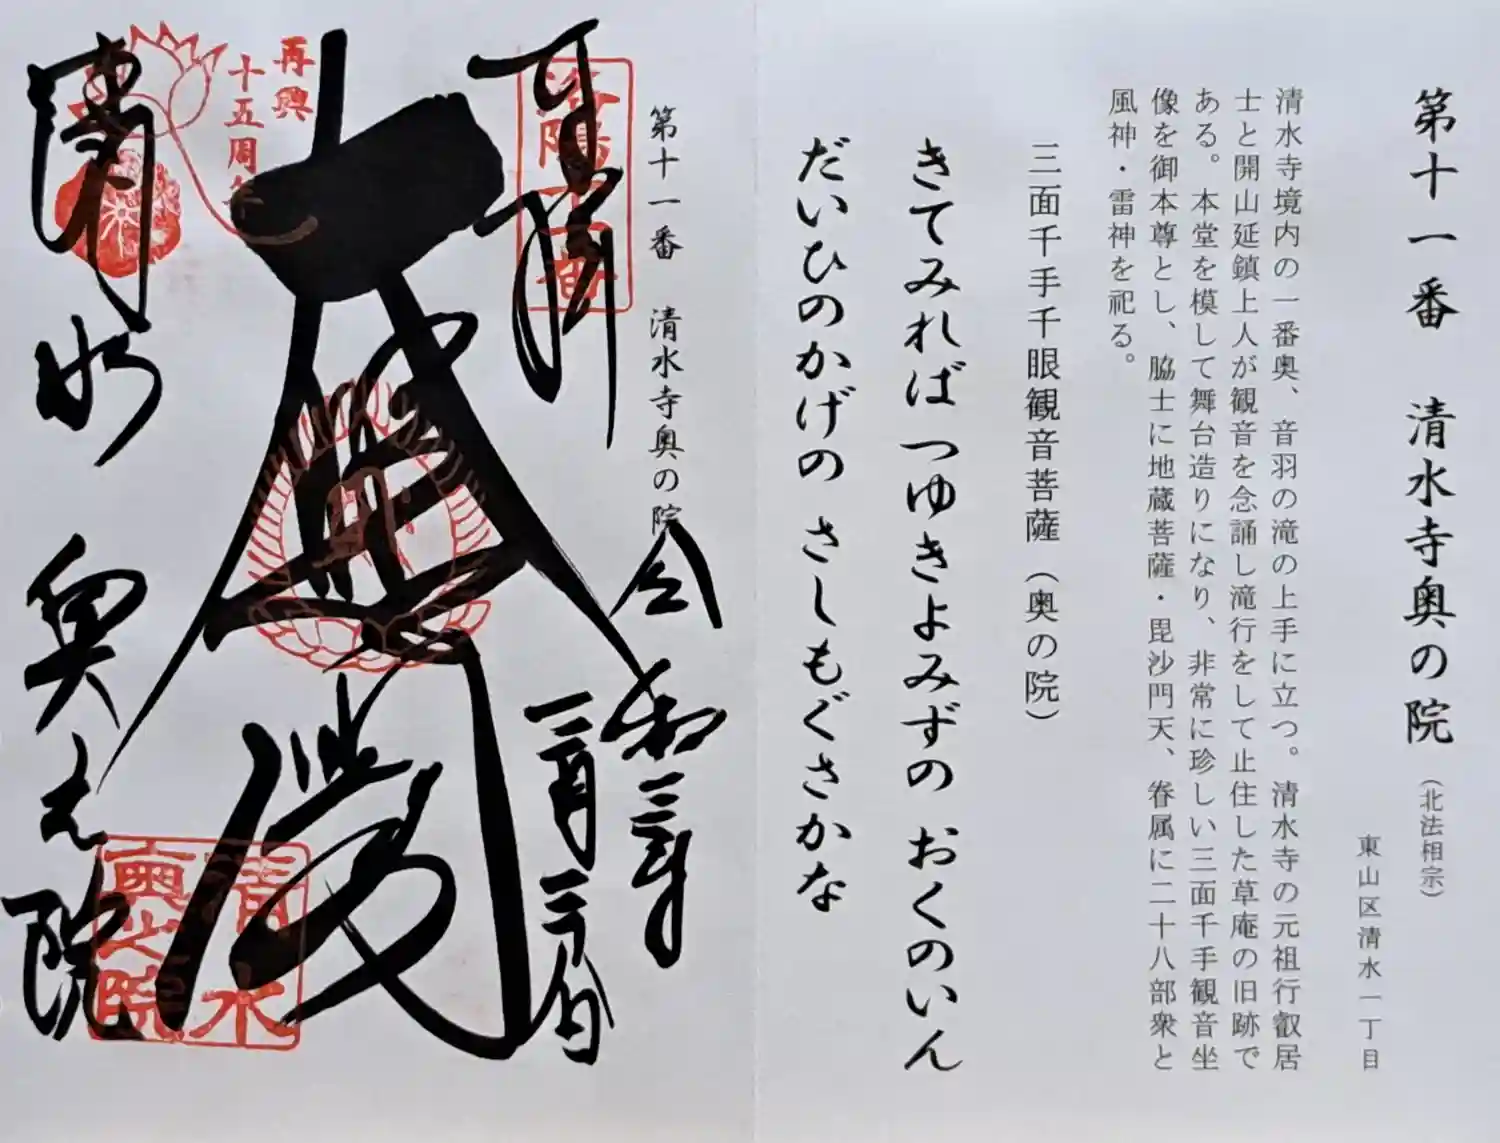 第十一番 清水寺奥の院(北法相宗)
東山区清水一丁目
清水寺境内の一番奥、音羽の滝の上手に立つ。清水寺の元祖行叡居
士と開山延鎮上人が観音を念誦し滝行をして止住した草庵の旧跡で
ある。本堂を模して舞台造りになり、非常に珍しい三面千手観音坐
像を御本尊とし、脇士に地蔵菩薩・毘沙門天、眷属に二十八部衆と
風神・雷神を祀る。
三面千手千眼観音菩薩(奥の院)
きてみれば つゆきよみずの おくのいん
だいひのかげの さしもぐさかな
第十一番 清水寺奥の院
令和二年
二月二十八日
洛陽十一番
再興
十五周年
清水 奥之院
清水
奥之院